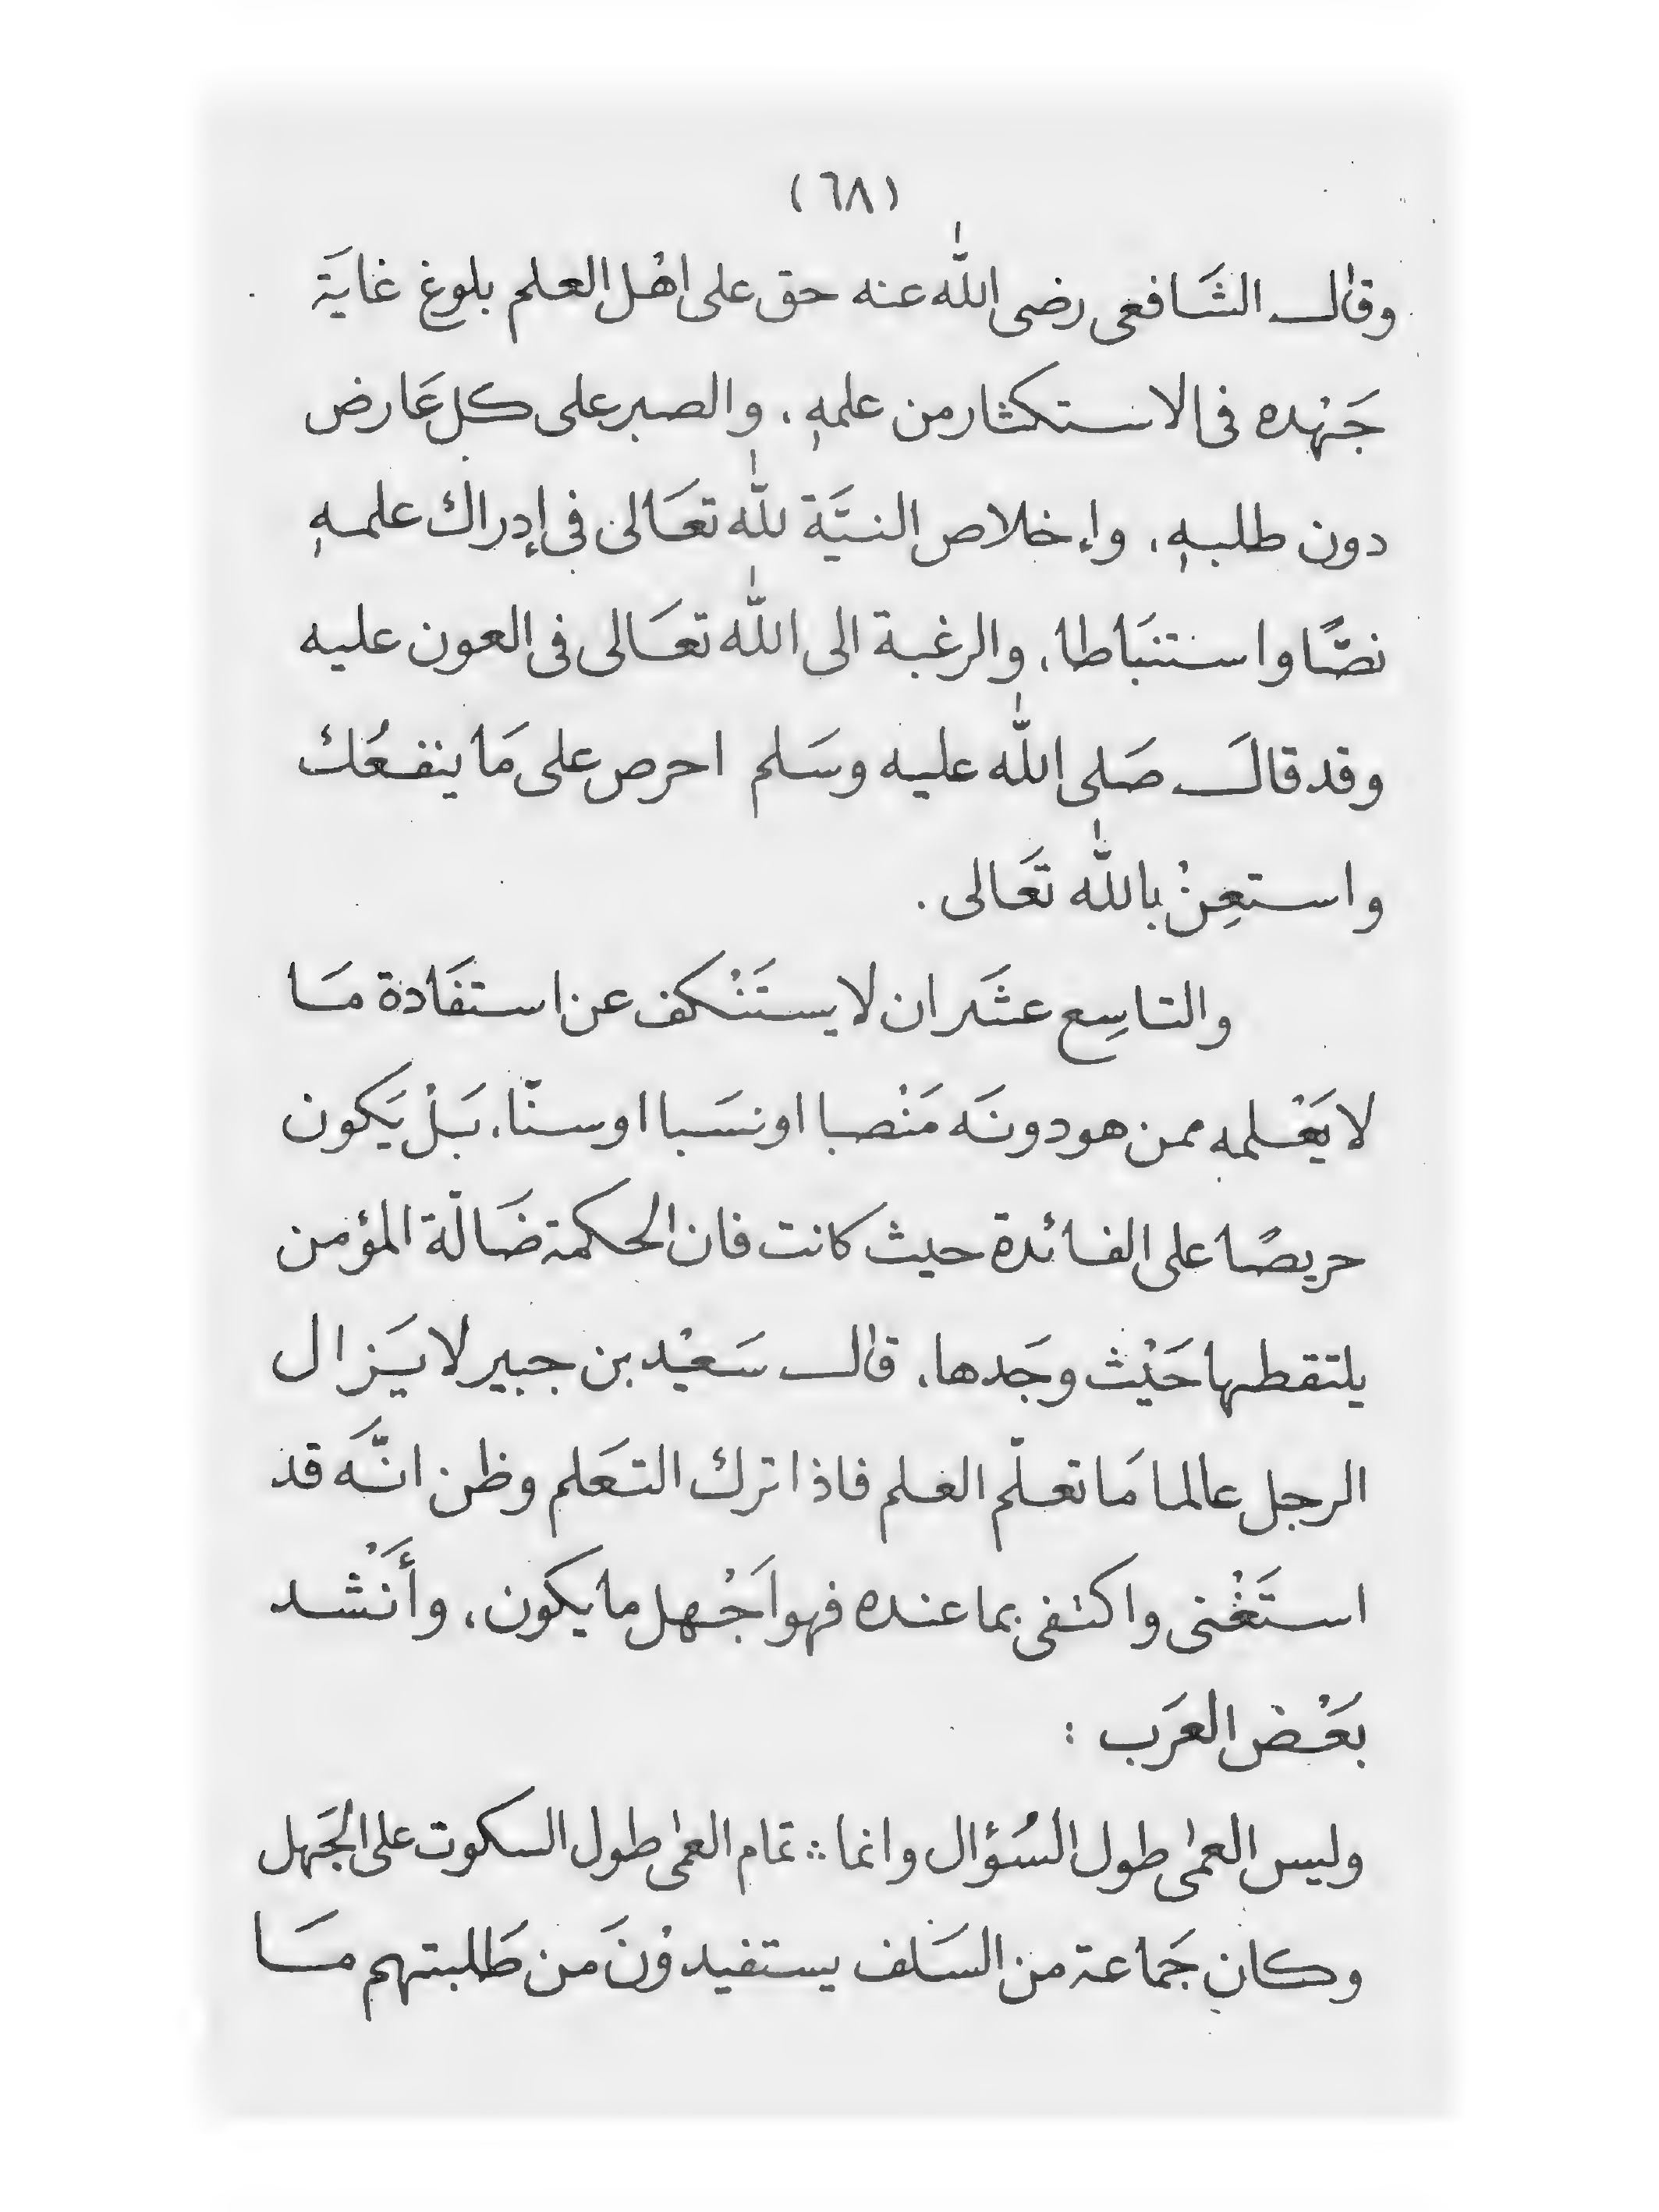 (٦٨)
وقال الشَافعى رضى الله عنه حق على اهْل العلم بلوغ غايَة
جَهْده فى الاستكثار من علمهِ، والصبر على كل عَارض
دون طلبهِ، وإخلاص النيَّة لله تعَالى فى إدراك علمهِ
نصًّا واستنبَاطا، والرغبة الى الله تعَالى فى العون عليه
وقد قالَ صَلى الله عليه وسَلم احرص على مَا ينفعُك
واستعِنْ بالله تعَالى .
والتاسِع عشَر ان لا يستَنْكف عن استفَادة مَا
لا يَعْلمه ممن هو دونَه مَنْصبا او نسَبا او سنّا، بَلْ يَكون
حريصًا على الفائدة حيث كانت فان الحكمة ضَالّة المؤمن
يلتقطها حَيْث وجَدها، قال سَعيْد بن جبير لا يَزال
الرجل عالما مَا تعلّم العلم فاذا ترك التعَلم وظن انَّه قد
استَغْنى واكتفى بما عنده فهو اَجْهل ما يكون، وأَنْشد
بَعْض العرَب :
وليس العمى طول السُؤال وانما ∴ تمام العمى طول السكوت على الجَهل
وكان جَماعة من السَلف يستفيدوْنَ من طَلبتهم مَا